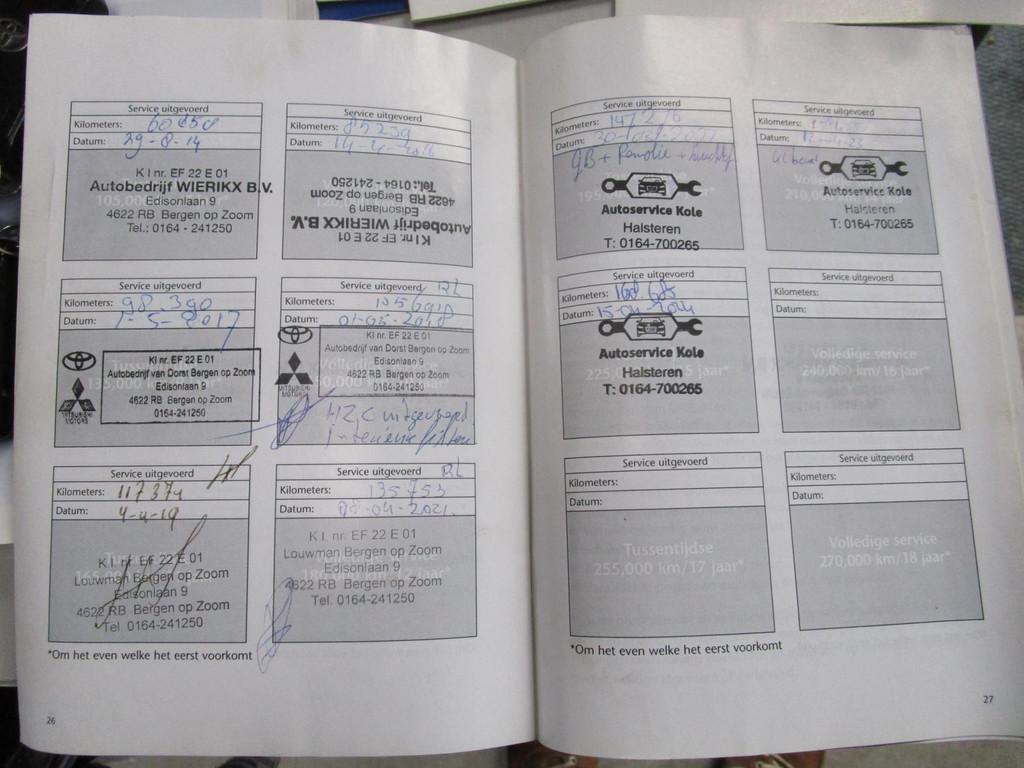 Service uitgevoerd
Kilometers: 60850
Datum: 29-8-14
K I nr. EF 22 E 01
Autobedrijf WIERIKX B.V.
Edisonlaan 9
4622 RB Bergen op Zoom
Tel.: 0164 - 241250
Service uitgevoerd
Kilometers: 85239
Datum: 14-4-2016
K I nr. EF 22 E 01
Autobedrijf WIERIKX B.V.
Edisonlaan 9
4622 RB Bergen op Zoom
Tel.: 0164 - 241250
Service uitgevoerd
Kilometers: 98.390
Datum: 1-5-2017
Tussentijdse
135,000 km/
KI nr. EF 22 E 01
Autobedrijf van Dorst Bergen op Zoom
Edisonlaan 9
4622 RB Bergen op Zoom
0164-241250
MITSUBISHI
MOTORS
Service uitgevoerd
Kilometers:
Datum: 01-05-2018
KI nr. EF 22 E 01
Autobedrijf van Dorst Bergen op Zoom
Edisonlaan 9
4622 RB Bergen op Zoom
0164-241250
MITSUBISHI
MOTORS
uitgevoerd
Service uitgevoerd
Kilometers: 117374
Datum: 4-4-19
K I. nr. EF 22 E 01
Louwman Bergen op Zoom
Edisonlaan 9
4622 RB Bergen op Zoom
Tel. 0164-241250
Service uitgevoerd
Kilometers: 135753
Datum: 08-04-2021.
K I. nr. EF 22 E 01
Louwman Bergen op Zoom
Edisonlaan 9
4622 RB Bergen op Zoom
Tel. 0164-241250
*Om het even welke het eerst voorkomt
26
Service uitgevoerd
Kilometers: 147276
Datum:
GB +
Autoservice Kole
Halsteren
T: 0164-700265
Service uitgevoerd
Kilometers:
Datum:
210,000
Autoservice Kole
Halsteren
T: 0164-700265
Service uitgevoerd
Kilometers: 168.685
Datum: 15-04-2024
Autoservice Kole
Halsteren
T: 0164-700265
Service uitgevoerd
Kilometers:
Datum:
Volledige service
240,000 km/16 jaar*
Service uitgevoerd
Kilometers:
Datum:
Tussentijdse
255,000 km/17 jaar*
Service uitgevoerd
Kilometers:
Datum:
Volledige service
270,000 km/18 jaar*
*Om het even welke het eerst voorkomt
27